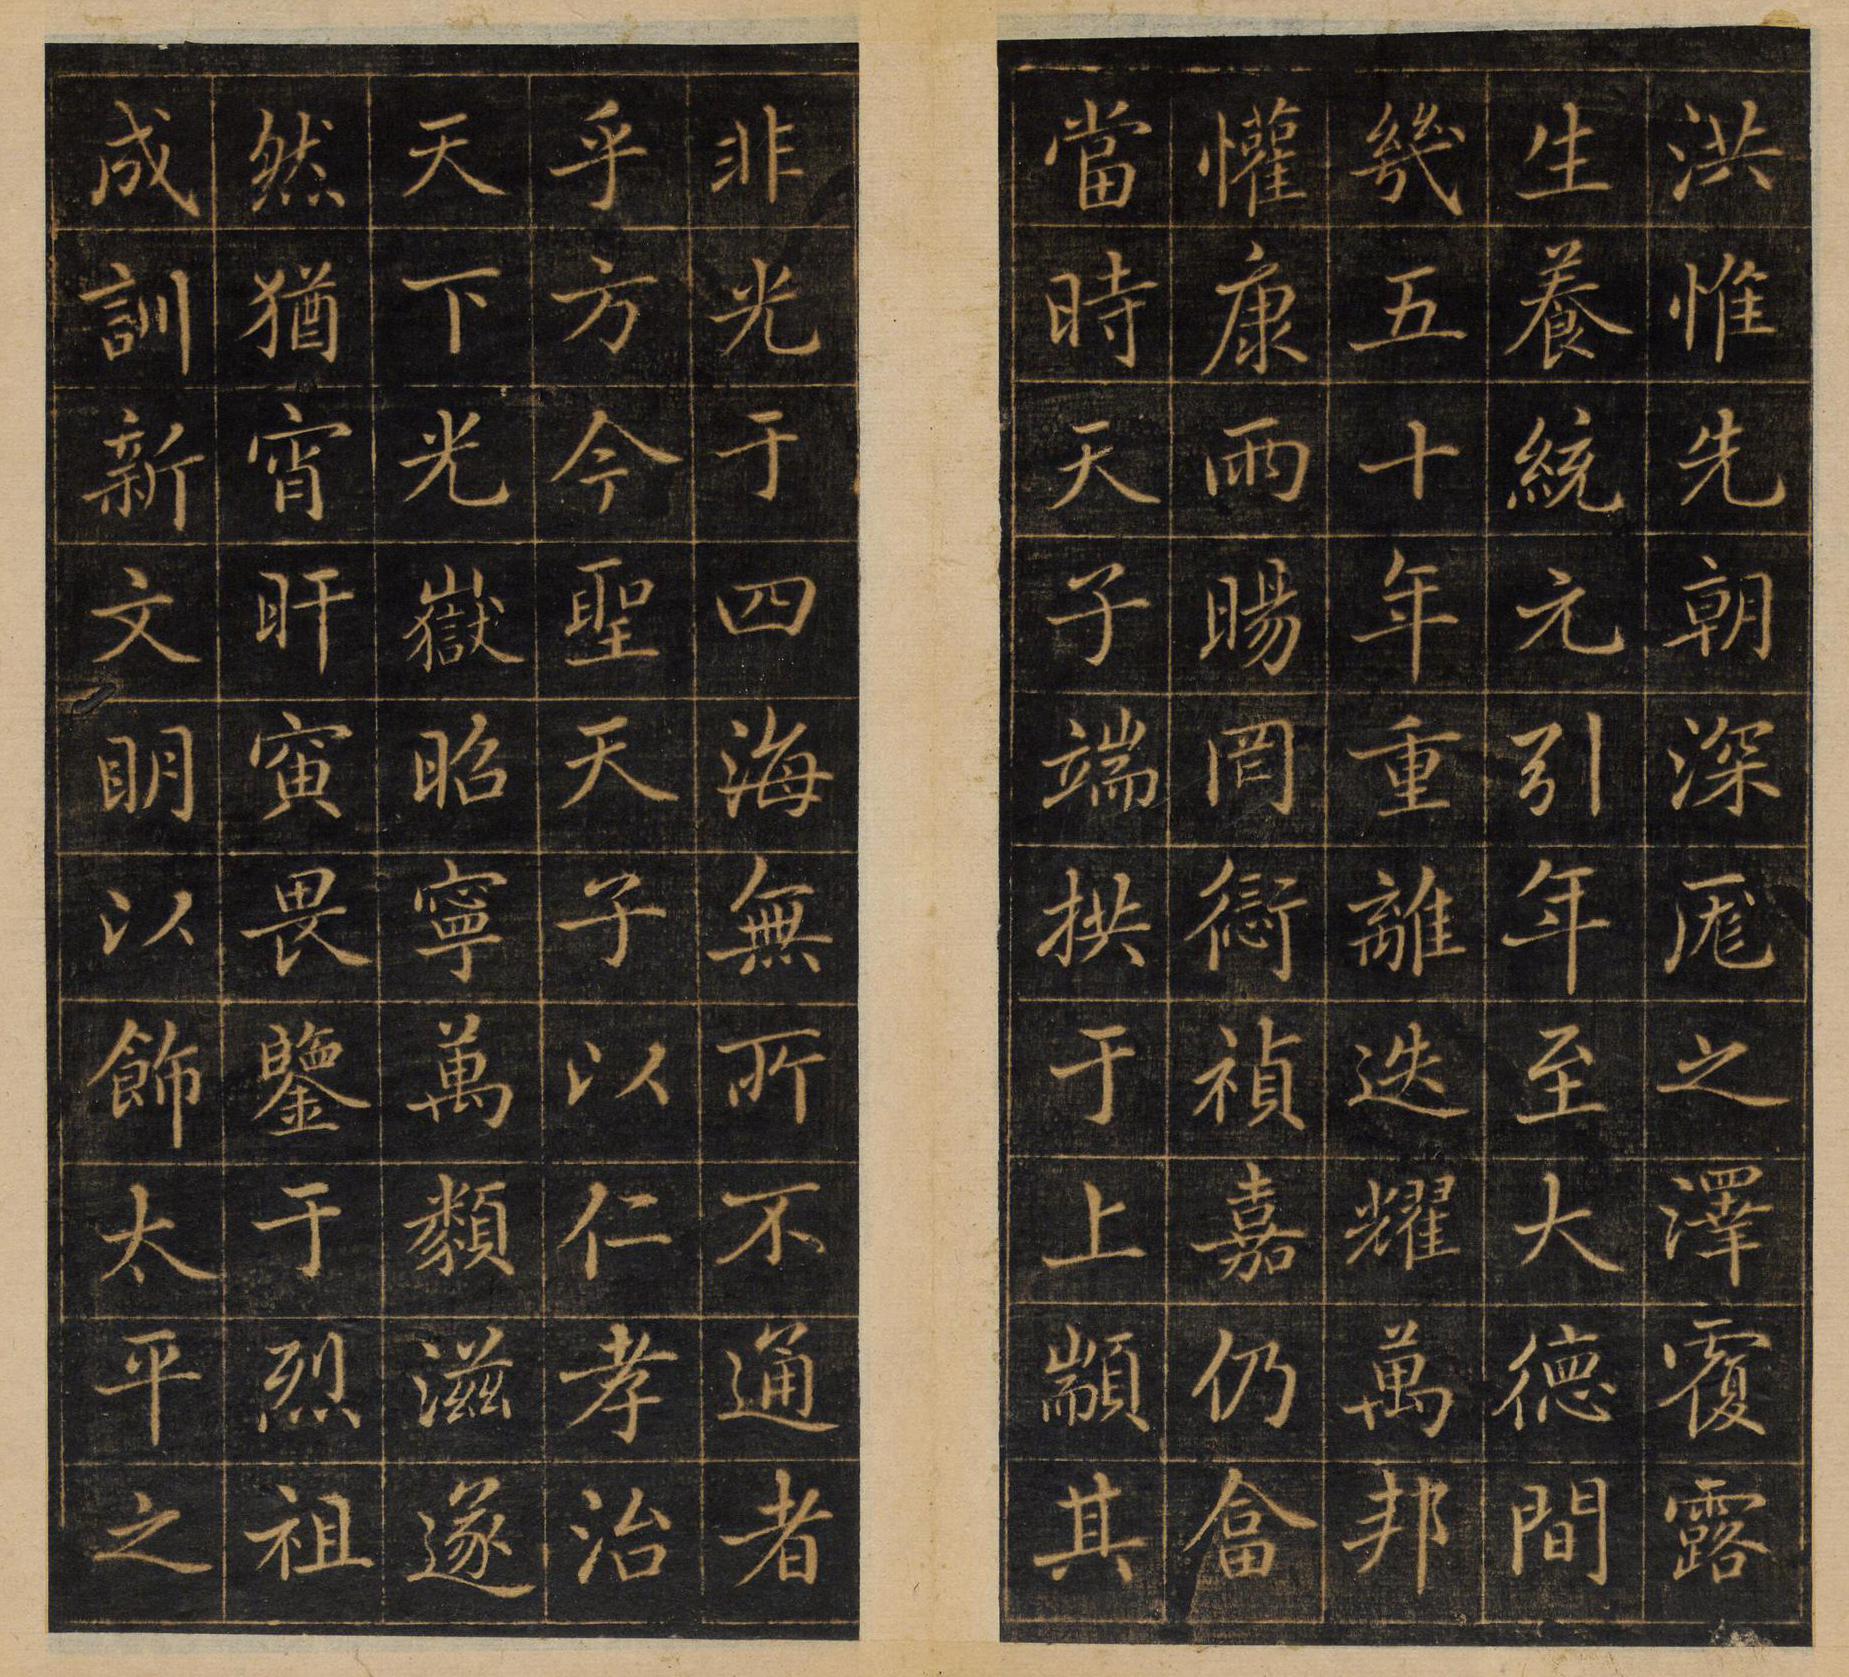 洪惟先朝深厖之澤覆露
生養統元引年至大德間
幾五十年重離迭耀萬邦
懽康雨暘罔愆禎嘉仍畣
當時天子端拱于上顓其
非光于四海無所不通者
乎方今聖天子以仁孝治
天下光嶽昭寧萬類滋遂
然猶宵旰寅畏鑒于烈祖
成訓新文明以飾太平之